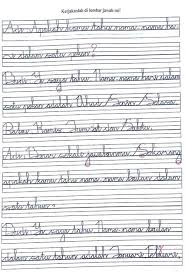 Kerjakanlah di lembar jawab ini!
Adi: Apakah kamu tahu nama-nama ha
ri dalam satu pekan?
Dudi: Ya saya tahu. Nama-nama hari dalam
satu pekan adalah Ahad/Senin/Selasa
Rabu, Kamis, Jum'at dan Sabtu.
Adi: Benar sekali jawabanmu/Sekarang
apakah kamu tahu nama-nama bulan dalam
satu tahun?
Dudi: Ya saya tahu Nama-nama bulan
dalam satu tahun adalah Januari Februari,